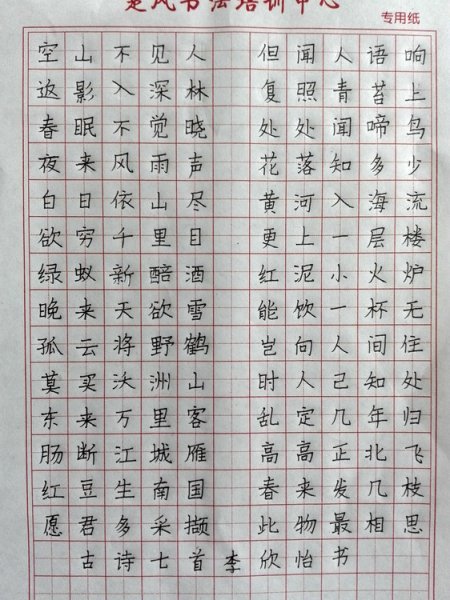 楚风书法培训中心
专用纸
空山不见人 但闻人语响
返影入深林 复照青苔上
春眠不觉晓 处处闻啼鸟
夜来风雨声 花落知多少
白日依山尽 黄河入海流
欲穷千里目 更上一层楼
绿蚁新醅酒 红泥小火炉
晚来天欲雪 能饮一杯无
孤云将野鹤 岂向人间住
莫买沃洲山 时人己知处
东来万里客 乱定几年归
肠断江城雁 高高正北飞
红豆生南国 春来发几枝
愿君多采撷 此物最相思
古诗七首李欣怡书